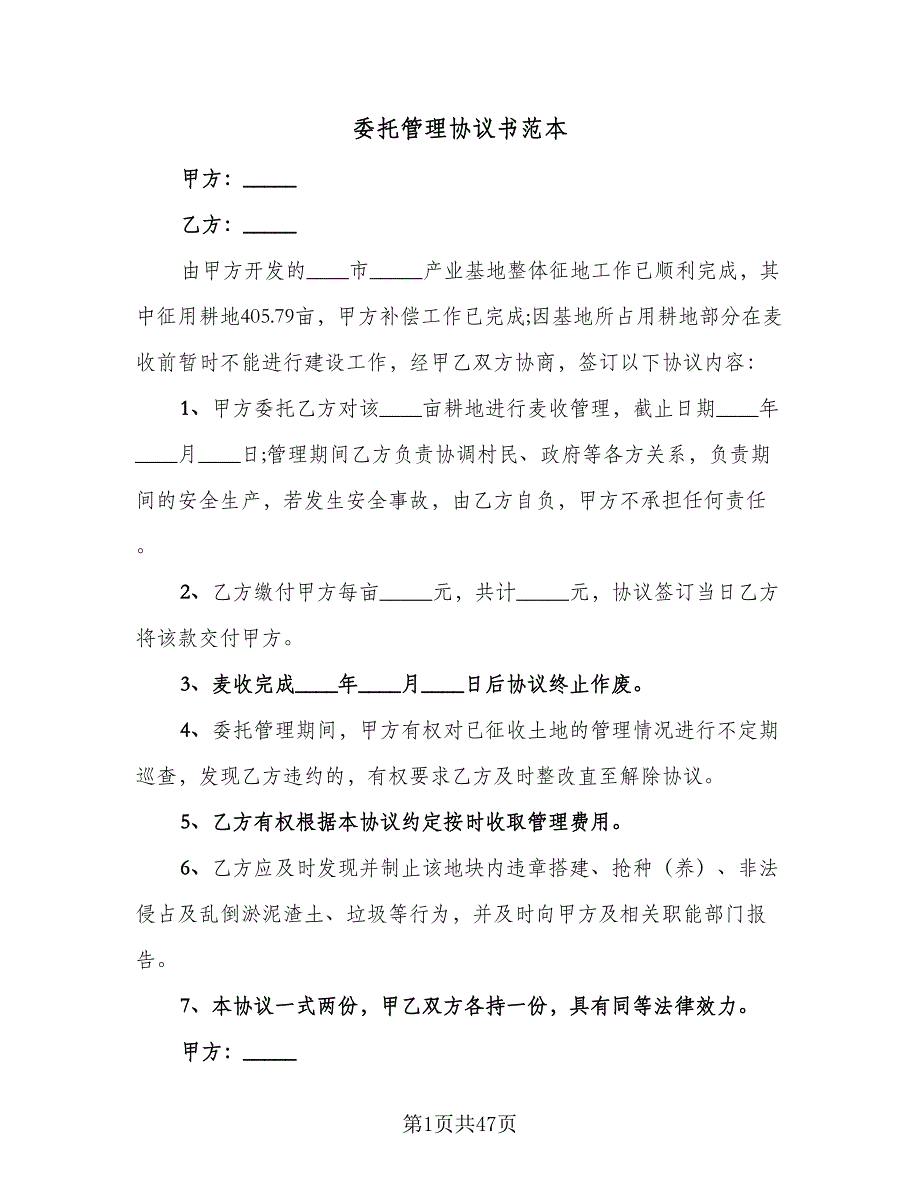 委托管理协议书范本
甲方：_____
乙方：_____
由甲方开发的____市_____产业基地整体征地工作已顺利完成，其
中征用耕地405.79亩，甲方补偿工作已完成;因基地所占用耕地部分在麦
收前暂时不能进行建设工作，经甲乙双方协商，签订以下协议内容：
1、甲方委托乙方对该____亩耕地进行麦收管理，截止日期____年
____月____日;管理期间乙方负责协调村民、政府等各方关系，负责期
间的安全生产，若发生安全事故，由乙方自负，甲方不承担任何责任
。
2、乙方缴付甲方每亩_____元，共计_____元，协议签订当日乙方
将该款交付甲方。
3、麦收完成____年____月____日后协议终止作废。
4、委托管理期间，甲方有权对已征收土地的管理情况进行不定期
巡查，发现乙方违约的，有权要求乙方及时整改直至解除协议。
5、乙方有权根据本协议约定按时收取管理费用。
6、乙方应及时发现并制止该地块内违章搭建、抢种（养）、非法
侵占及乱倒淤泥渣土、垃圾等行为，并及时向甲方及相关职能部门报
告。
7、本协议一式两份，甲乙双方各持一份，具有同等法律效力。
甲方：_____
第1页共47页